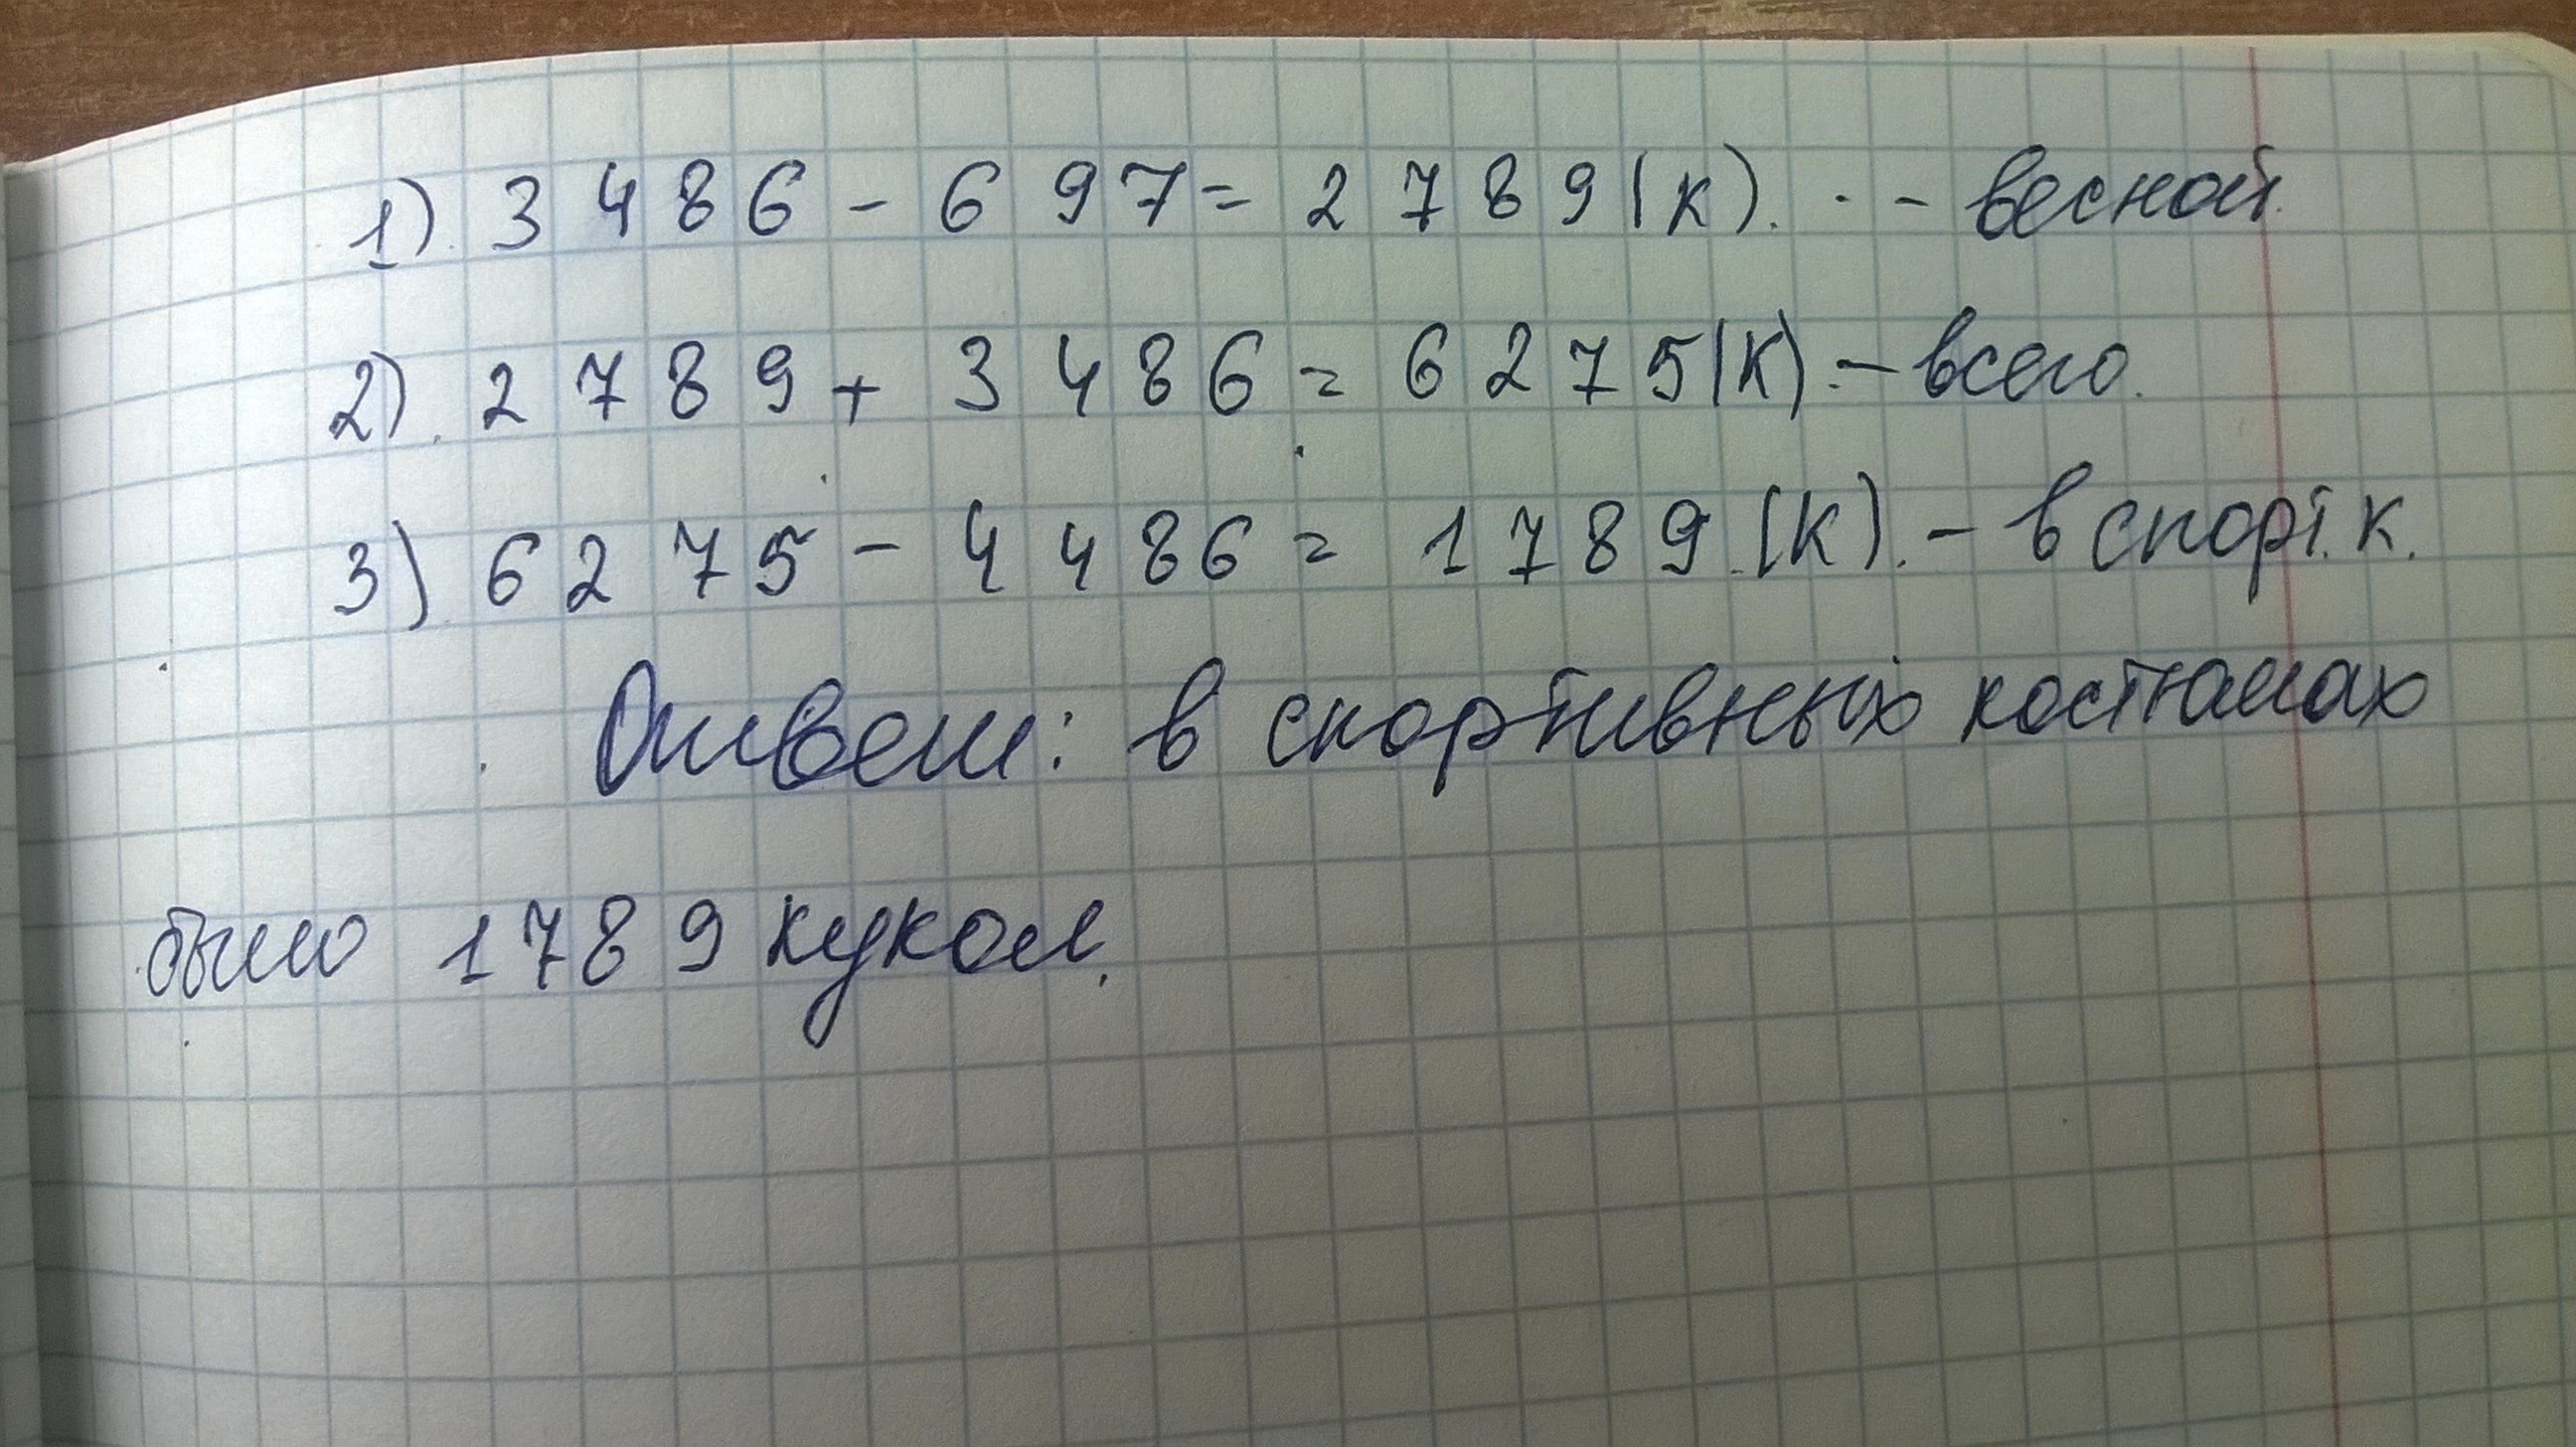 1). 3486 - 697 = 2789 (к). - - весной.
2). 2789 + 3486 = 6275 (К). - всего.
3) 6275 - 4486 = 1789. (К). - в спорт. к.
Ответ: в спортивных костюмах
было 1789 кукол.